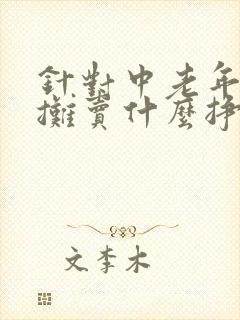 針對中老年
攤賣什麼掙
文李木